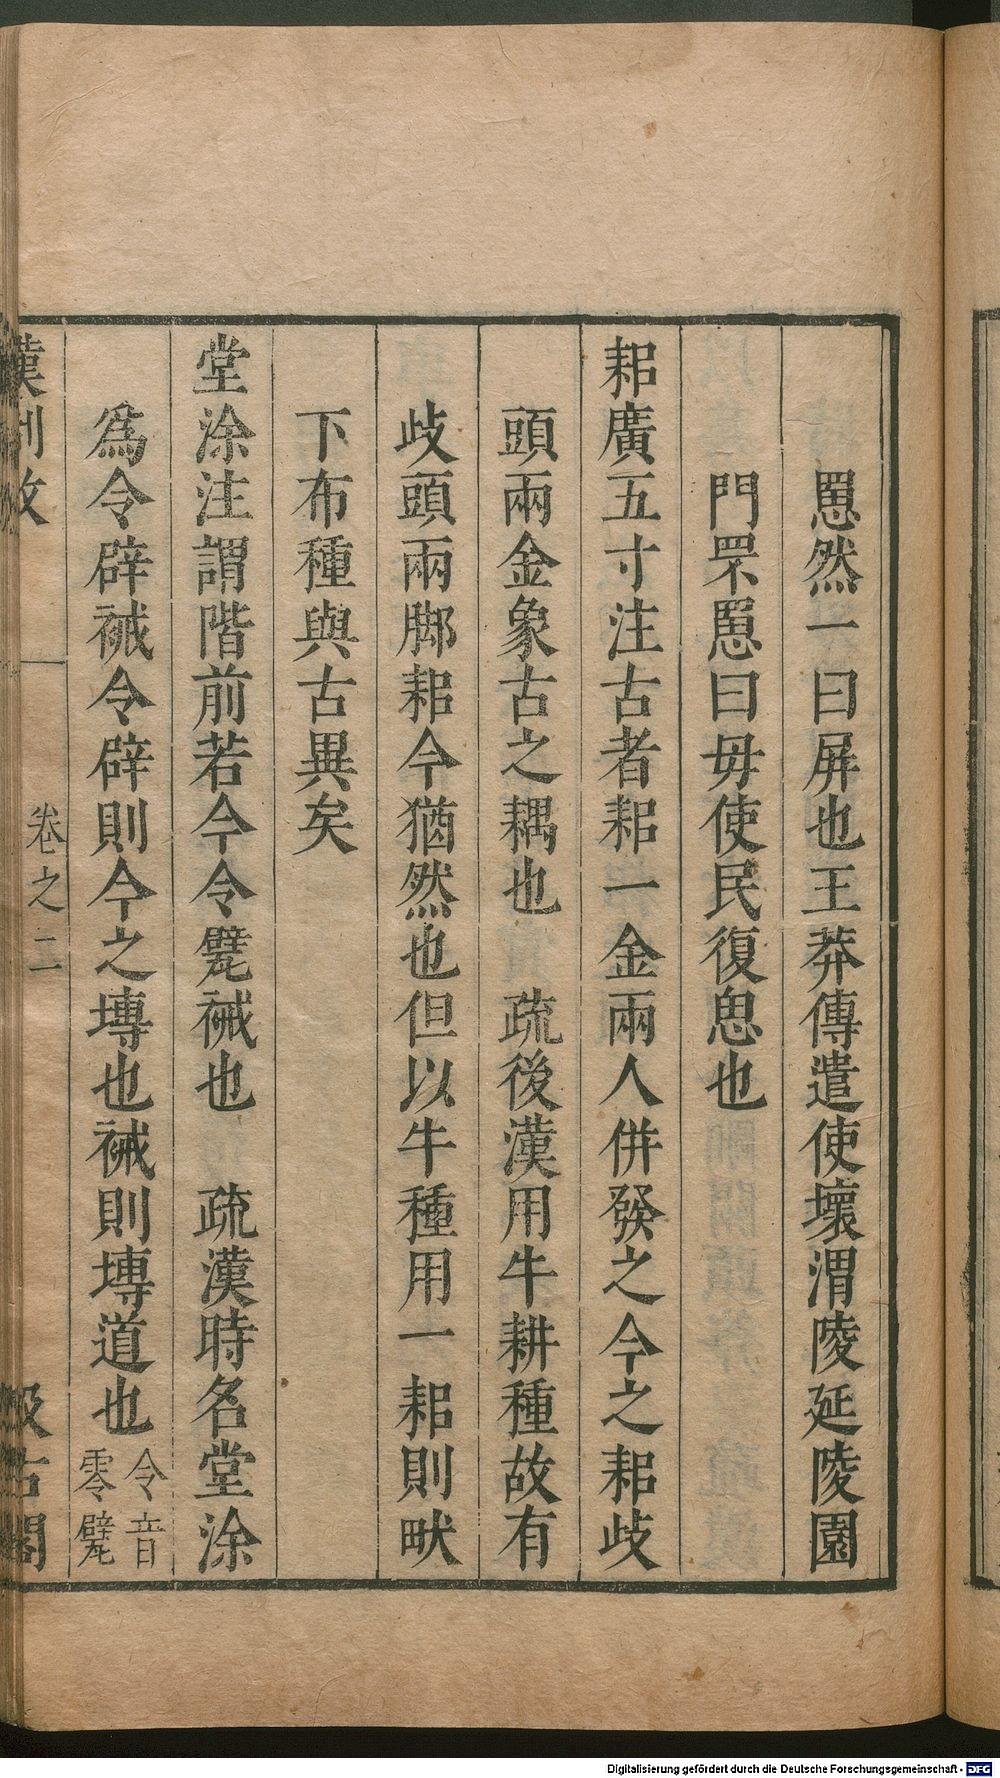 罳然一曰屏也王莽傳遣使壞渭陵延陵園
門罘罳曰毋使民復思也
耜廣五寸注古者耜一金兩人併發之今之耜歧
頭兩金象古之耦也 疏後漢用牛耕種故有
歧頭兩脚耜今猶然也但以牛種用一耜則畎
下布種與古異矣
堂涂注謂階前若今令甓裓也 疏漢時名堂涂
為令辟裓令辟則今之塼也裓則塼道也令音零甓
漢制攷 卷之二 汲古閣
Digitalisierung gefördert durch die Deutsche Forschungsgemeinschaft - DFG